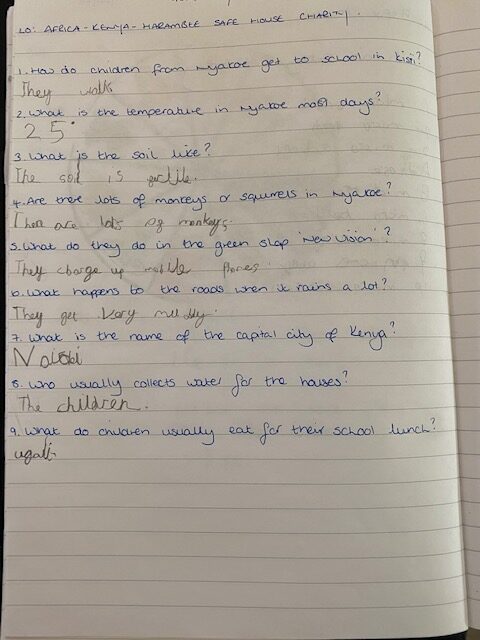 LO: AFRICA - KENYA - HARAMBLE SAFE HOUSE CHARITY.
1. How do children from Nyakoe get to school in Kisii?
They walk
2. What is the temperature in Nyakoe most days?
25°
3. What is the soil like?
The soil is fertile.
4. Are there lots of monkeys or squirrels in Nyakoe?
There are lots of monkeys.
5. What do they do in the green shop 'New Vision'?
They charge up mobile phones.
6. What happens to the roads when it rains a lot?
They get very muddy.
7. What is the name of the capital city of Kenya?
8. Who usually collects water for the houses?
The children.
9. What do children usually eat for their school lunch?
ugali